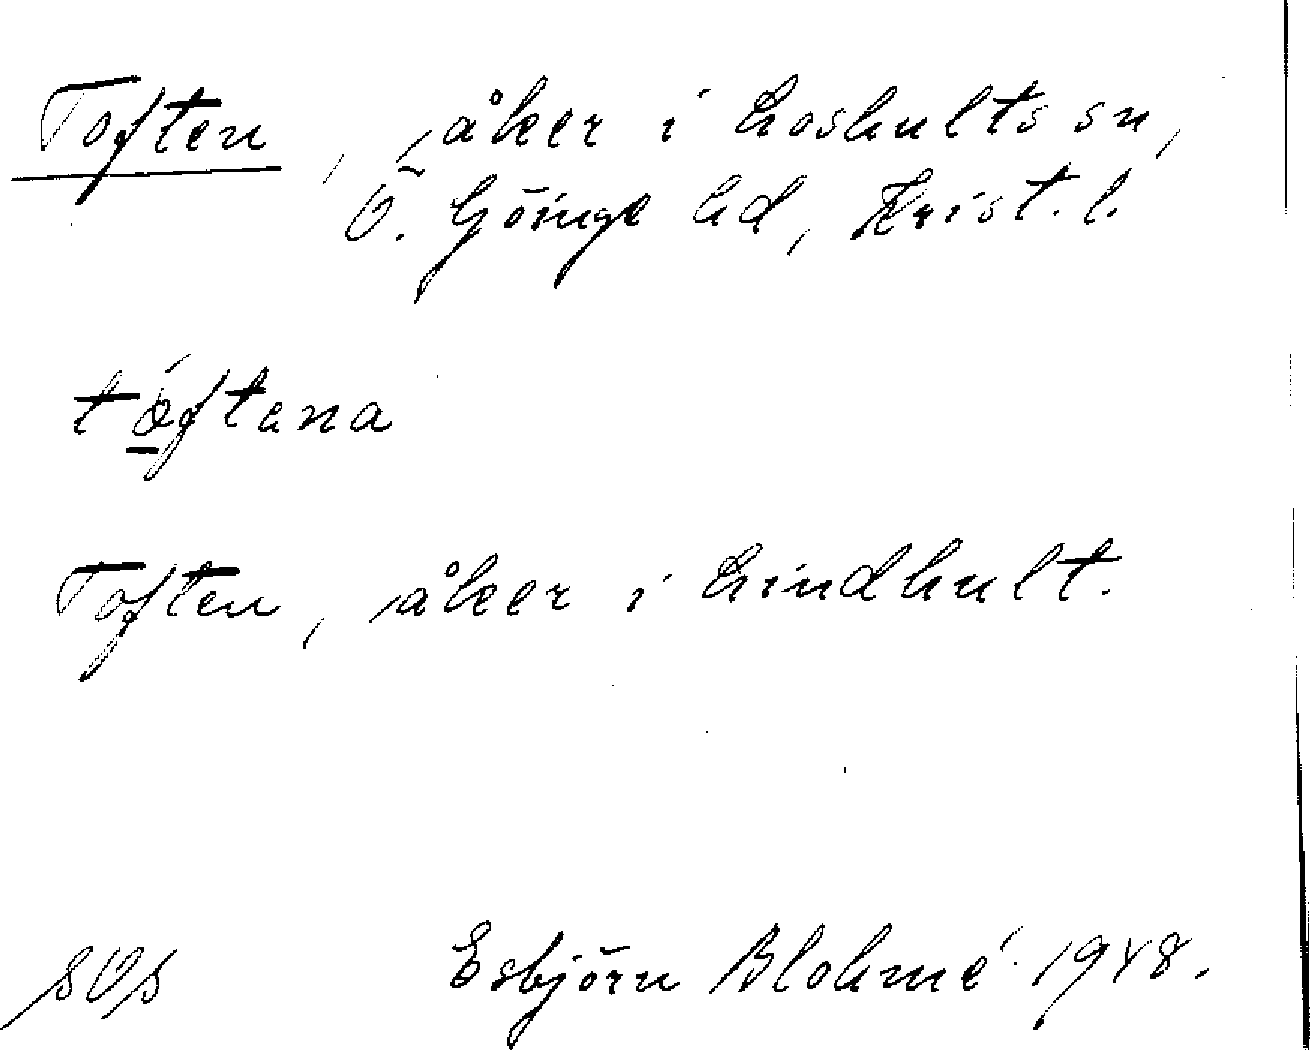 Toften, åker i Loshults sn,
Ö. Göinge hd, Krist. l.
tǿftena
Toften, åker i Lindhult.
Esbjörn Blohmé 1948.